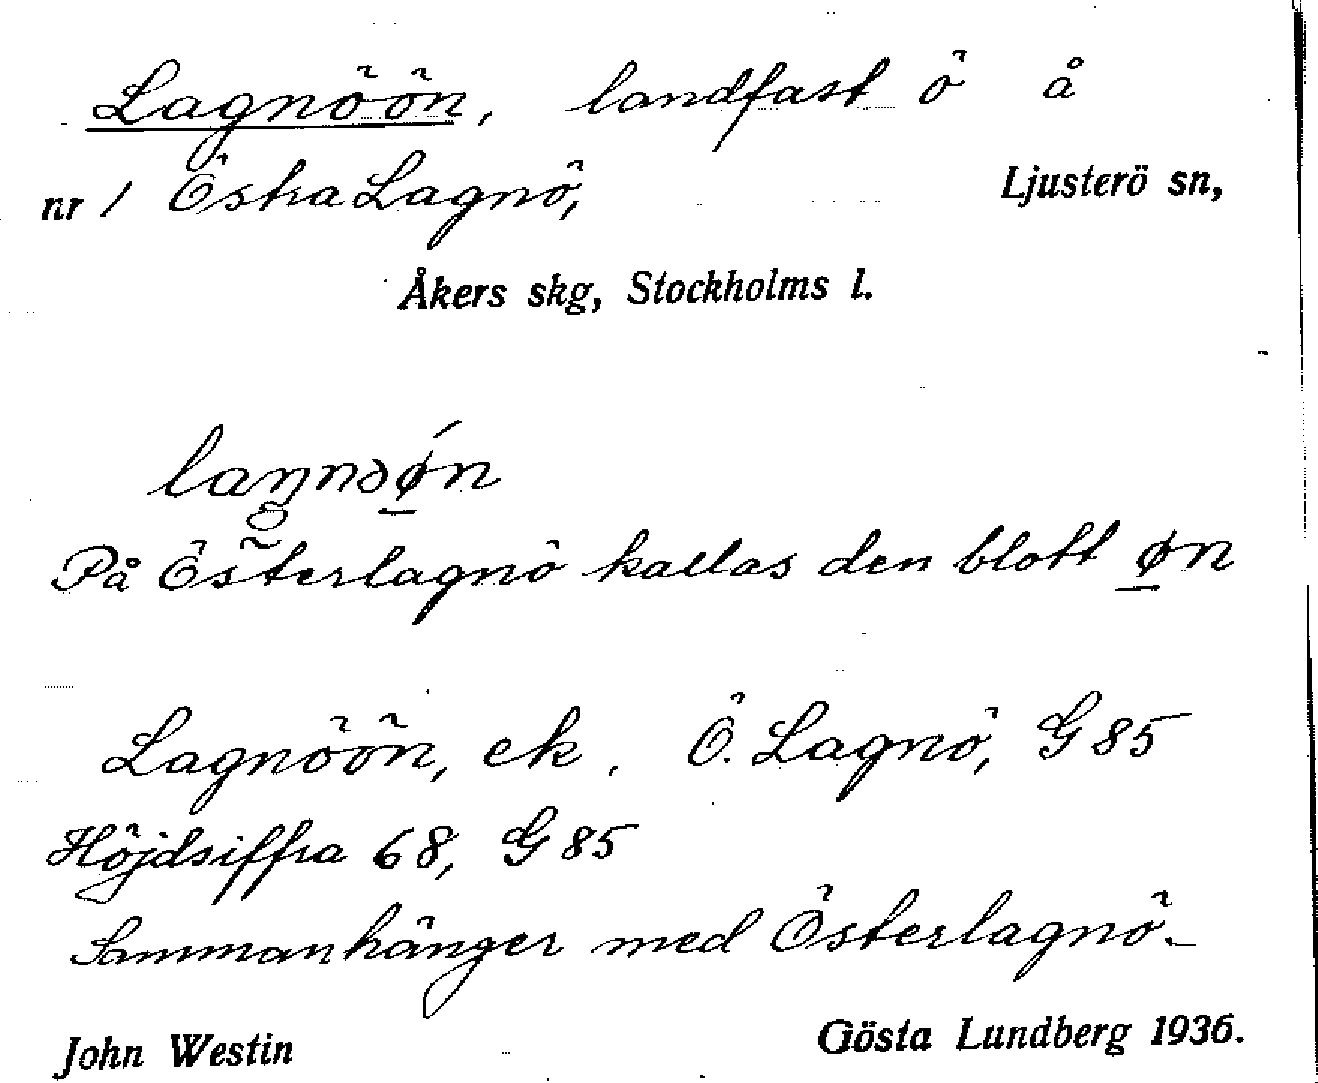 Lagnöön, landfast ö å
nr 1 Östra Lagnö, Ljusterö sn,
Åkers skg, Stockholms l.
laŋnəǿ̱n
På Österlagnö kallas den blott ø̱n
Lagnöön, ek. Ö. Lagnö, G 85
Höjdsiffra 68, G 85
Sammanhänger med Österlagnö.
John Westin Gösta Lundberg 1936.